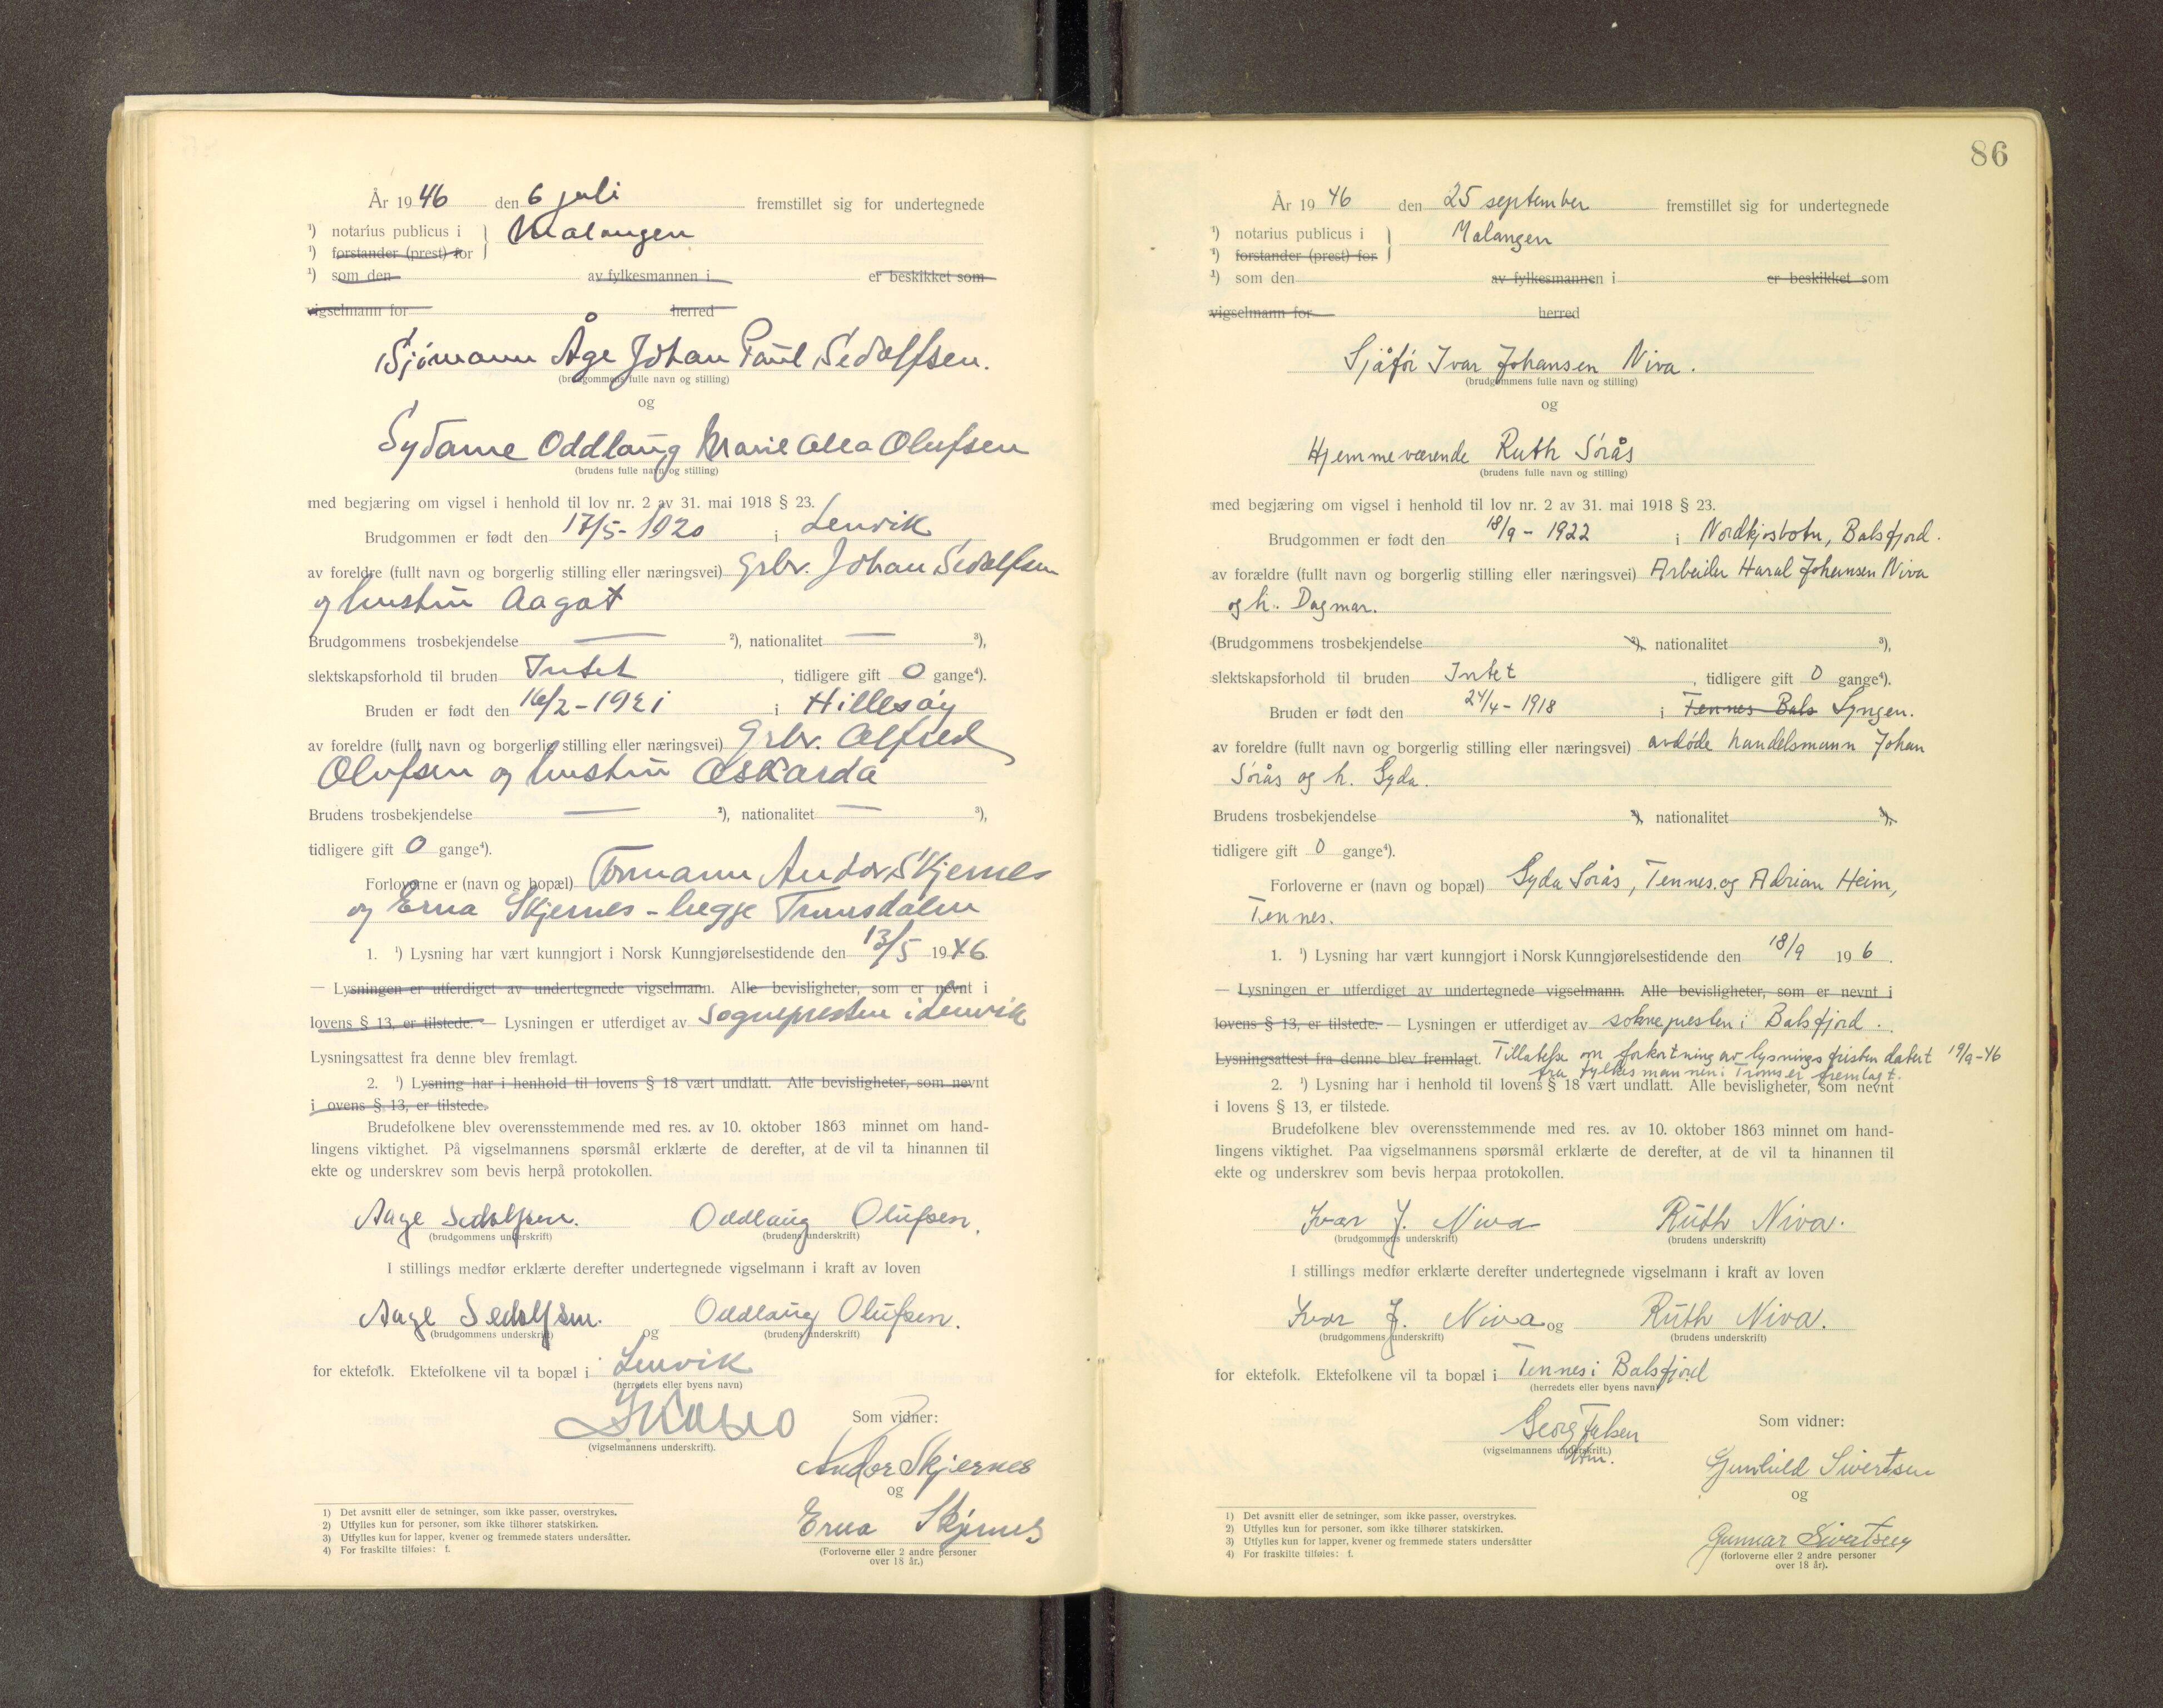 År 1946 den 6 juli fremstillet sig for undertegnede
¹) notarius publicus i } Malangen
¹) forstander (prest) for
¹) som den av fylkesmannen i er beskikket som
vigselmann for herred
Sjømann Åge Johan Paul Sedolfsen.
(brudgommens fulle navn og stilling)
og
Sydame Oddlaug Marie Alea Olufsen
(brudens fulle navn og stilling)
med begjæring om vigsel i henhold til lov nr. 2 av 31. mai 1918 § 23.
Brudgommen er født den 17/5-1920 i Lenvik
av foreldre (fullt navn og borgerlig stilling eller næringsvei) Grbr. Johan Sedolfsen
og hustru Aagot
Brudgommens trosbekjendelse — ²), nationalitet — ³),
slektskapsforhold til bruden Intet, tidligere gift 0 gange⁴).
Bruden er født den 16/2-1921 i Hillesøy
av foreldre (fullt navn og borgerlig stilling eller næringsvei) Grbr. Alfred
Olufsen og hustru Oskarda
Brudens trosbekjendelse — ²), nationalitet — ³),
tidligere gift 0 gange⁴).
Forloverne er (navn og bopæl) Andor Skjernes
og Erna Skjernes - begge
1. ¹) Lysning har vært kunngjort i Norsk Kunngjørelsestidende den 13/5 1946.
— Lysningen er utferdiget av undertegnede vigselmann. Alle bevisligheter, som er nevnt i
lovens § 13, er tilstede. — Lysningen er utferdiget av sognepresten i Lenvik
Lysningsattest fra denne blev fremlagt.
2. ¹) Lysning har i henhold til lovens § 18 vært undlatt. Alle bevisligheter, som nevnt
i ovens § 13, er tilstede.
Brudefolkene blev overensstemmende med res. av 10. oktober 1863 minnet om hand-
lingens viktighet. På vigselmannens spørsmål erklærte de derefter, at de vil ta hinannen til
ekte og underskrev som bevis herpå protokollen.
Aage Sedolfsen. Oddlaug Olufsen.
(brudgommens underskrift) (brudens underskrift)
I stillings medfør erklærte derefter undertegnede vigselmann i kraft av loven
Aage Sedolfsen. og Oddlaug Olufsen.
(brudgommens underskrift) (brudens underskrift)
for ektefolk. Ektefolkene vil ta bopæl i Lenvik
(herredets eller byens navn)
(vigselmannens underskrift).
Som vidner:
Andor Skjernes
og
Erna Skjernes
(Forloverne eller 2 andre personer
over 18 år.)
1) Det avsnitt eller de setninger, som ikke passer, overstrykes.
2) Utfylles kun for personer, som ikke tilhører statskirken.
3) Utfylles kun for lapper, kvener og fremmede staters undersåtter.
4) For fraskilte tilføies: f.
86
År 1946 den 25 september fremstillet sig for undertegnede
¹) notarius publicus i } Malangen
¹) forstander (prest) for
¹) som den av fylkesmannen i er beskikket som
vigselmann for herred
Sjåfør Ivar Johansen Niva.
(brudgommens fulle navn og stilling)
og
Hjemmeværende Ruth Sørås
(brudens fulle navn og stilling)
med begjæring om vigsel i henhold til lov nr. 2 av 31. mai 1918 § 23.
Brudgommen er født den 18/9 - 1922 i Nordkjosbotn, Balsfjord.
av forældre (fullt navn og borgerlig stilling eller næringsvei) Arbeider Haral Johansen Niva
og h. Dagmar.
(Brudgommens trosbekjendelse ²), nationalitet ³),
slektskapsforhold til bruden Intet, tidligere gift 0 gange⁴).
Bruden er født den 24/4 - 1918 i Tennes Bals Lyngen.
av foreldre (fullt navn og borgerlig stilling eller næringsvei) avdøde handelsmann Johan
Sørås og h. Gyda.
Brudens trosbekjendelse ²), nationalitet ³),
tidligere gift 0 gange⁴).
Forloverne er (navn og bopæl) Gyda Sørås, Tennes. og Adrian Heim,
Tennes.
1. ¹) Lysning har vært kunngjort i Norsk Kunngjørelsestidende den 18/9 19 6.
— Lysningen er utferdiget av undertegnede vigselmann. Alle bevisligheter, som er nevnt i
lovens § 13, er tilstede. — Lysningen er utferdiget av soknepresten i Balsfjord.
Lysningsattest fra denne blev fremlagt. Tillatelse om forkortning av lysningsfristen datert 19/9-46
fra fylkesmannen i Troms er fremlagt.
2. ¹) Lysning har i henhold til lovens § 18 vært undlatt. Alle bevisligheter, som nevnt
i lovens § 13, er tilstede.
Brudefolkene blev overensstemmende med res. av 10. oktober 1863 minnet om hand-
lingens viktighet. Paa vigselmannens spørsmål erklærte de derefter, at de vil ta hinannen til
ekte og underskrev som bevis herpaa protokollen.
Ivar J. Niva Ruth Niva.
(brudgommens underskrift) (brudens underskrift)
I stillings medfør erklærte derefter undertegnede vigselmann i kraft av loven
Ivar J. Niva og Ruth Niva.
(brudgommens underskrift) (brudens underskrift)
for ektefolk. Ektefolkene vil ta bopæl i Tennes i Balsfjord
(herredets eller byens navn)
Georg Falsen
(vigselmannens underskrift.)
Som vidner:
Gunhild Sivertsen
og
Gunnar Sivertsen
(forloverne eller 2 andre personer
over 18 år).
1) Det avsnitt eller de setninger, som ikke passer, overstrykes.
2) Utfylles kun for personer, som ikke tilhører statskirken.
3) Utfylles kun for lapper, kvener og fremmede staters undersåtter
4) For fraskilte tilføies: f.